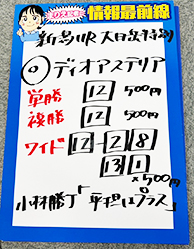 情報最前線
新潟11R 大日岳特別
◎ディオアステリア
単勝 12 500円
複勝 12 500円
ワイド 12-2 8
13 1
×500円
小林勝丁「平坦はプラス」